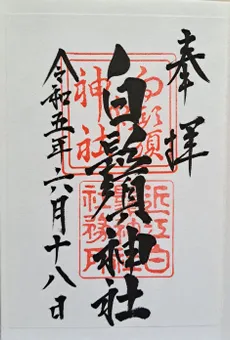 奉拝
白鬚神社
白鬚神社
近江白鬚神社社務所
令和五年六月十八日